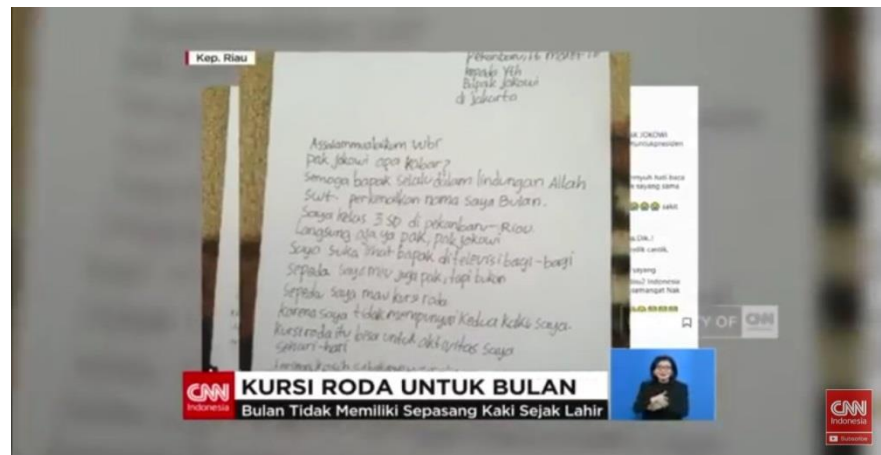 Kep. Riau
kepada Yth
Bapak Jokowi
di Jakarta
Assalammualaikum wbr
pak jokowi apa kabar?
semoga bapak selalu dalam lindungan Allah
swt. perkenalkan nama saya Bulan.
Saya kelas 3 SD di pekanbaru-Riau.
Langsung aja ya pak, pak jokowi
Saya suka lihat bapak di televisi bagi-bagi
sepeda saya mau juga pak, tapi bukan
sepeda saya mau kursi roda.
karena saya tidak mempunyai kedua kaki saya.
kursi roda itu bisa untuk aktivitas saya
sehari-hari
JOKOWI
hati baca
sayang sama
sakit
cantik,
sayang
Indonesia
semangat Nak
TY OF CNN
CNN
Indonesia
KURSI RODA UNTUK BULAN
Bulan Tidak Memiliki Sepasang Kaki Sejak Lahir
CNN
Indonesia
Subscribe